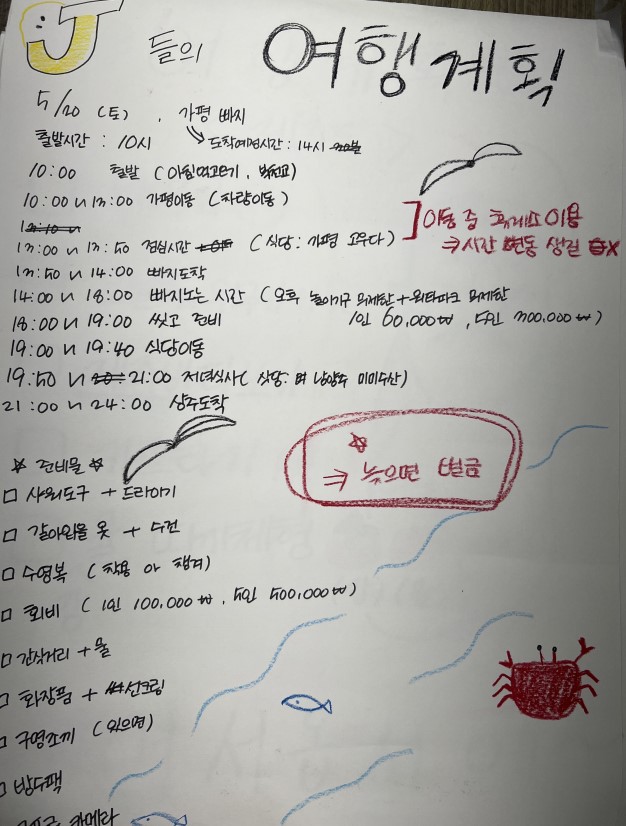 J들의 여행계획
5/20 (토) , 가평 빠지
출발시간 : 10시 → 도착예정시간 : 14시
10:00 출발 (아침먹고오기,
10:00 ~ 13:00 가평이동 (차량이동)
13:00 ~ 13:50 점심시간 (식당: 가평 고우다)
이동 중 휴게소 이용
⇒ 시간 변동 생길 수 x
13:50 ~ 14:00 빠지도착
14:00 ~ 18:00 빠지노는 시간 (오후 놀이기구 무제한 + 워터파크 무제한
1인 60,000₩, 5인 300,000₩)
18:00 ~ 19:00 씻고 준비
19:00 ~ 19:40 식당이동
19:50 ~ 21:00 저녁식사 (식당: 남양주 미미수산)
21:00 ~ 24:00 상주도착
⇒ 늦으면 벌금
☆ 준비물 ☆
□ 샤워도구 + 드라이기
□ 갈아입을 옷 + 수건
□ 수영복 (착용 or 챙겨)
□ 회비 (1인 100,000₩, 5인 500,000₩)
□ 간식거리 + 물
□ 화장품 + 선크림
□ 구명조끼 (있으면)
□ 방수팩
카메라